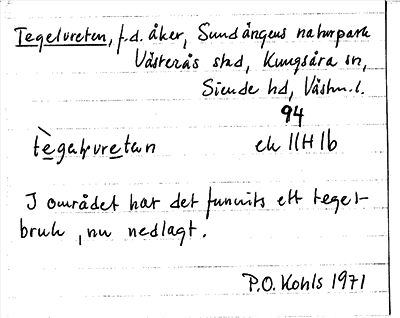 Tegelvreten, f.d. åker, Sundängens naturpark
Västerås stad, Kungsåra sn,
Siende hd, Västm. l.
94
tègalvretan ek 11H 1b
I området har det funnits ett tegel-
bruk, nu nedlagt.
P.O. Kohls 1971